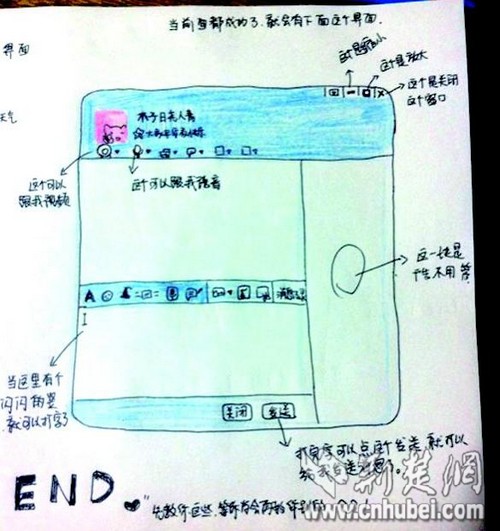 当前面都成功了,就会有下面这个界面.
界面
这是缩小
这是放大
这个是关闭
这个窗口
天气
木子日尧人青
这个可以
跟我视频
这个可以跟我语音
这一块是
广告不用管
A
消息记录
I
当这里有个
闪闪的竖
就可以打字了
关闭 发送
打完字可以点这个发送,就可以
给我发送消息了。
END
先教你这些,
荆楚網
www.cnhubei.com